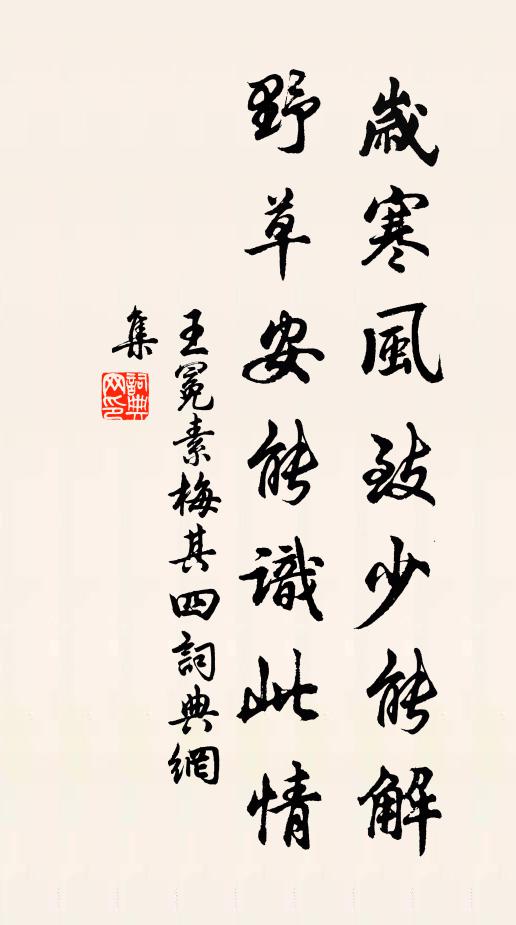 歲寒風致少能解
野草安能識此情
王冕素梅其四詞典網
集
詞典
网印